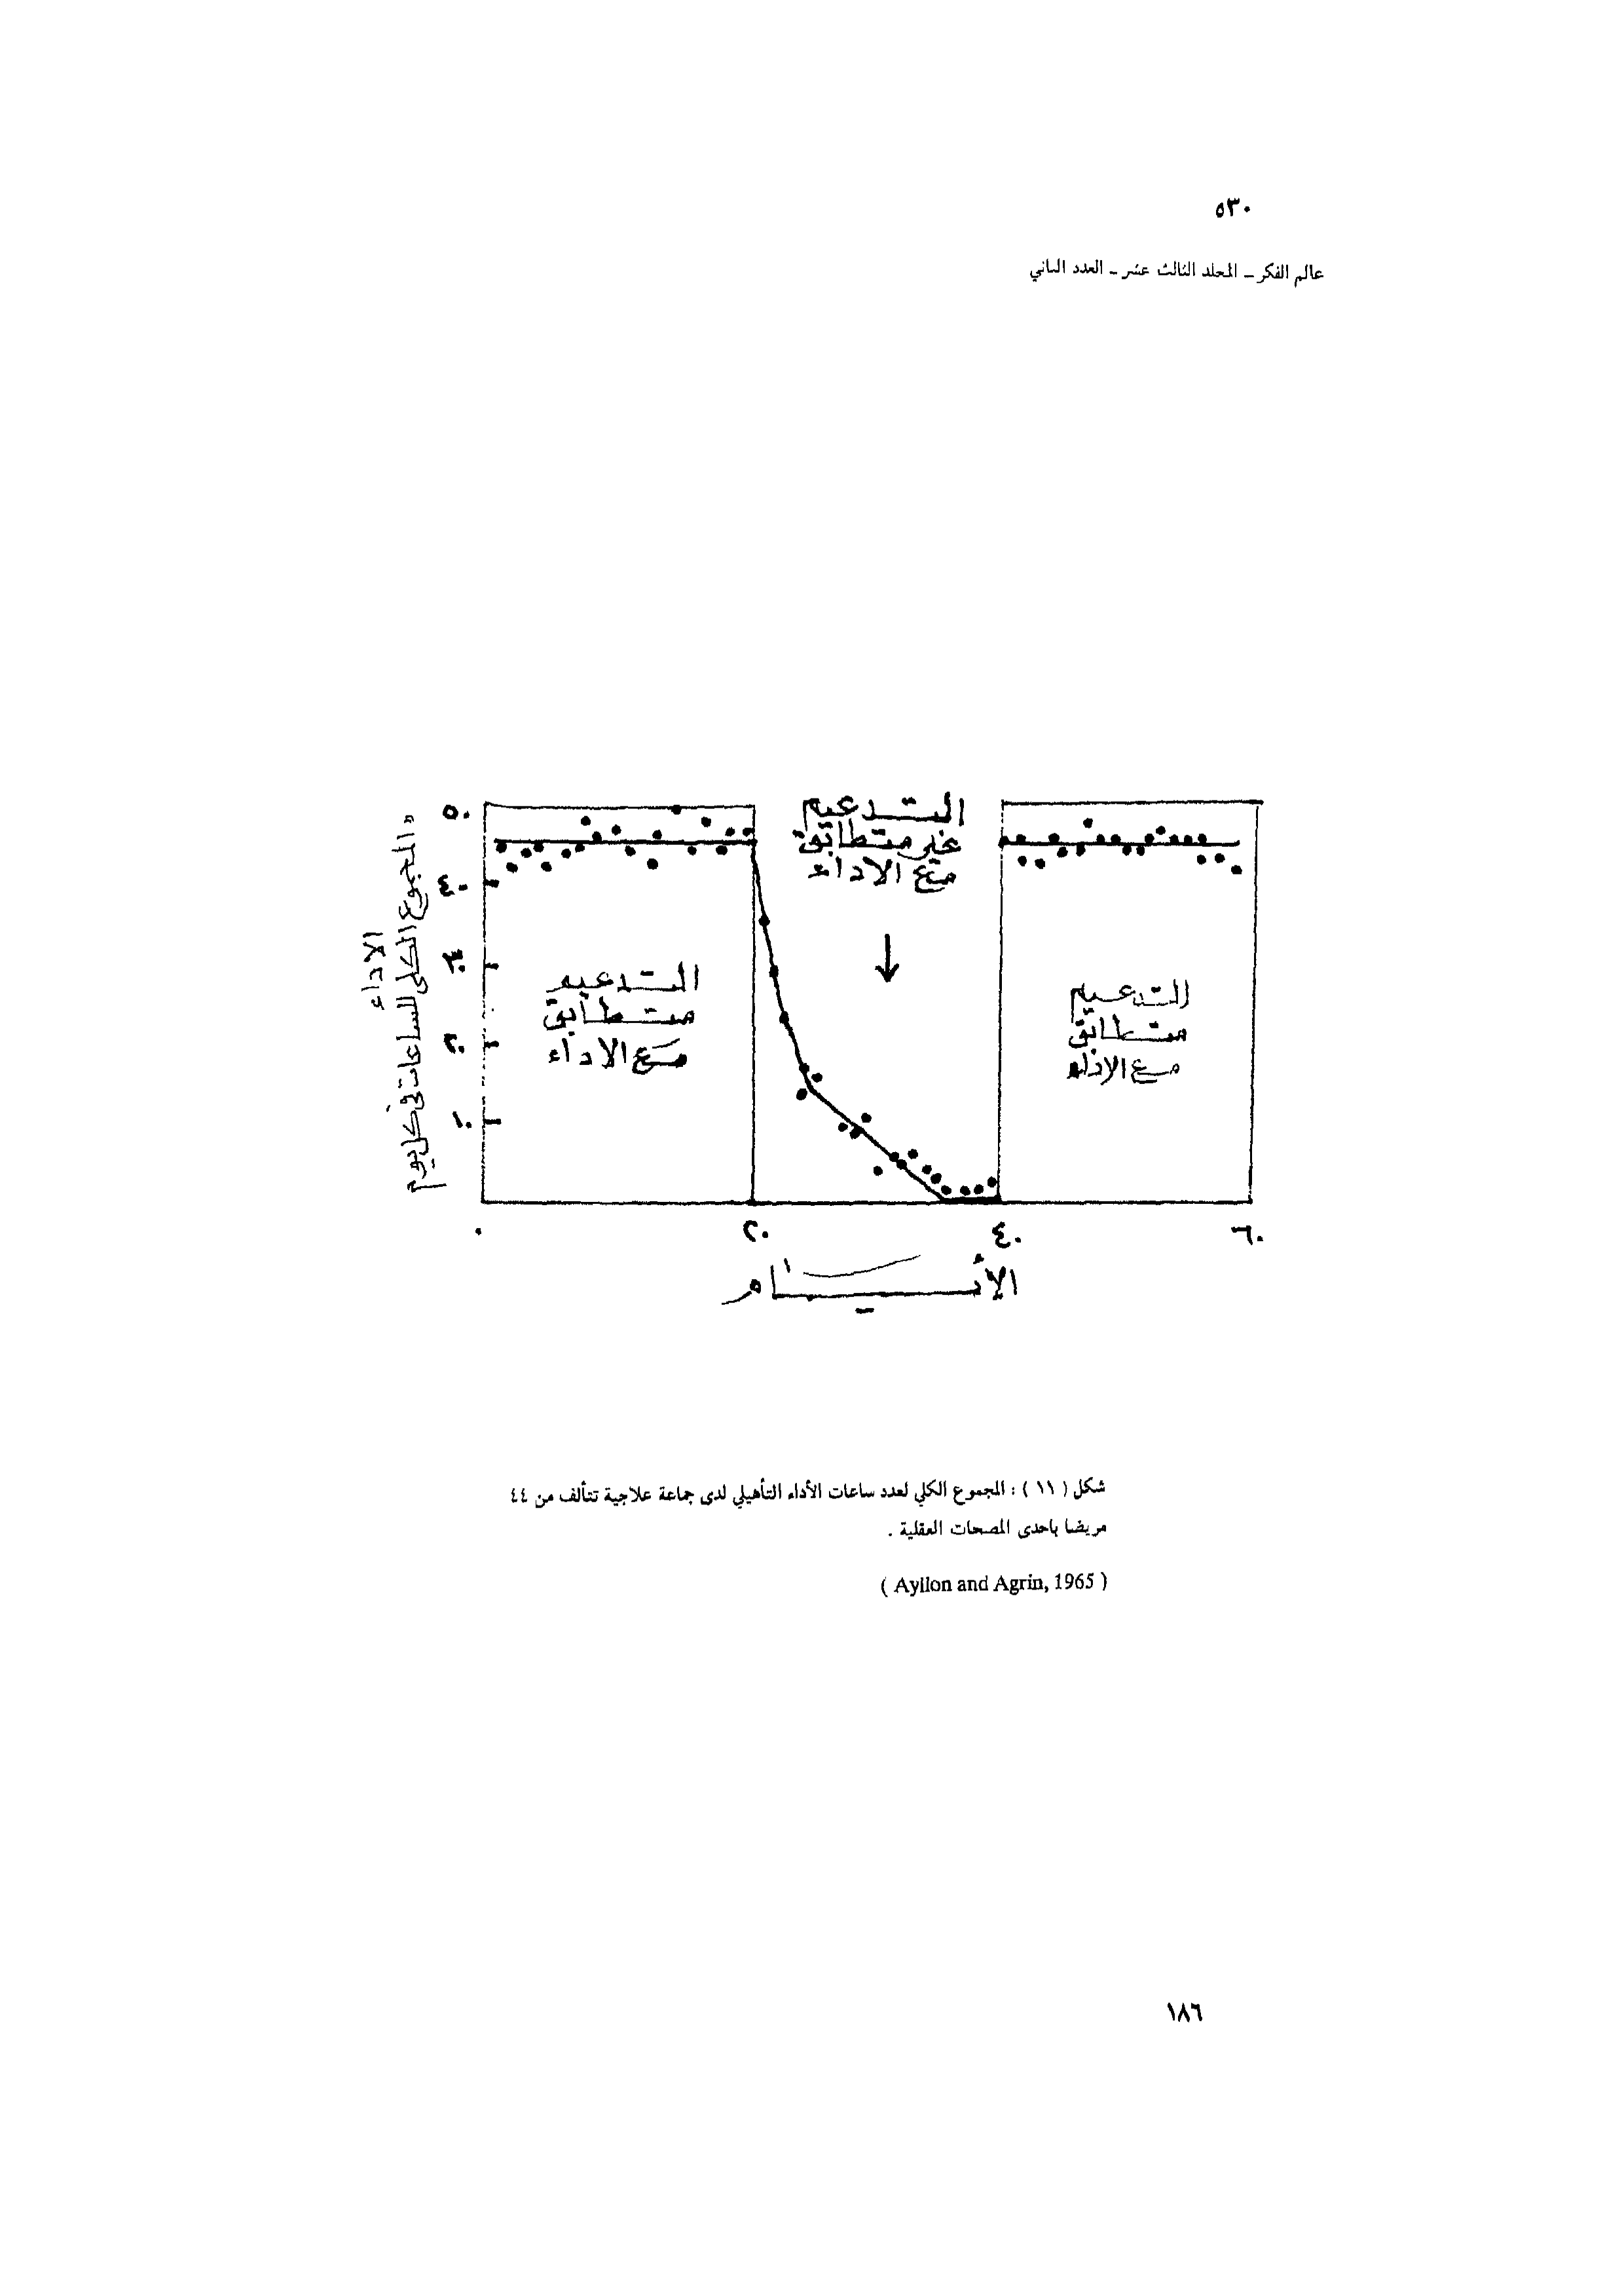 ٥٣٠
عالم الفكر ـ المجلد الثالث عشر ـ العدد الثاني
التدعيم
غير متطابق
مع الاداء
التدعيم
متطابق
مع الاداء
التدعيم
متطابق
مع الاداء
الاداء
«المجموع الكلى للساعات فى كل يوم
٥٠
٤٠
٣٠
٢٠
١٠
٠
٢٠
٤٠
٦٠
الأيام
شكل ( ١١ ) : المجموع الكلي لعدد ساعات الأداء التأهيلي لدى جماعة علاجية تتألف من ٤٤
مريضا باحدى المصحات العقلية .
( Ayllon and Agrin, 1965 )
١٨٦